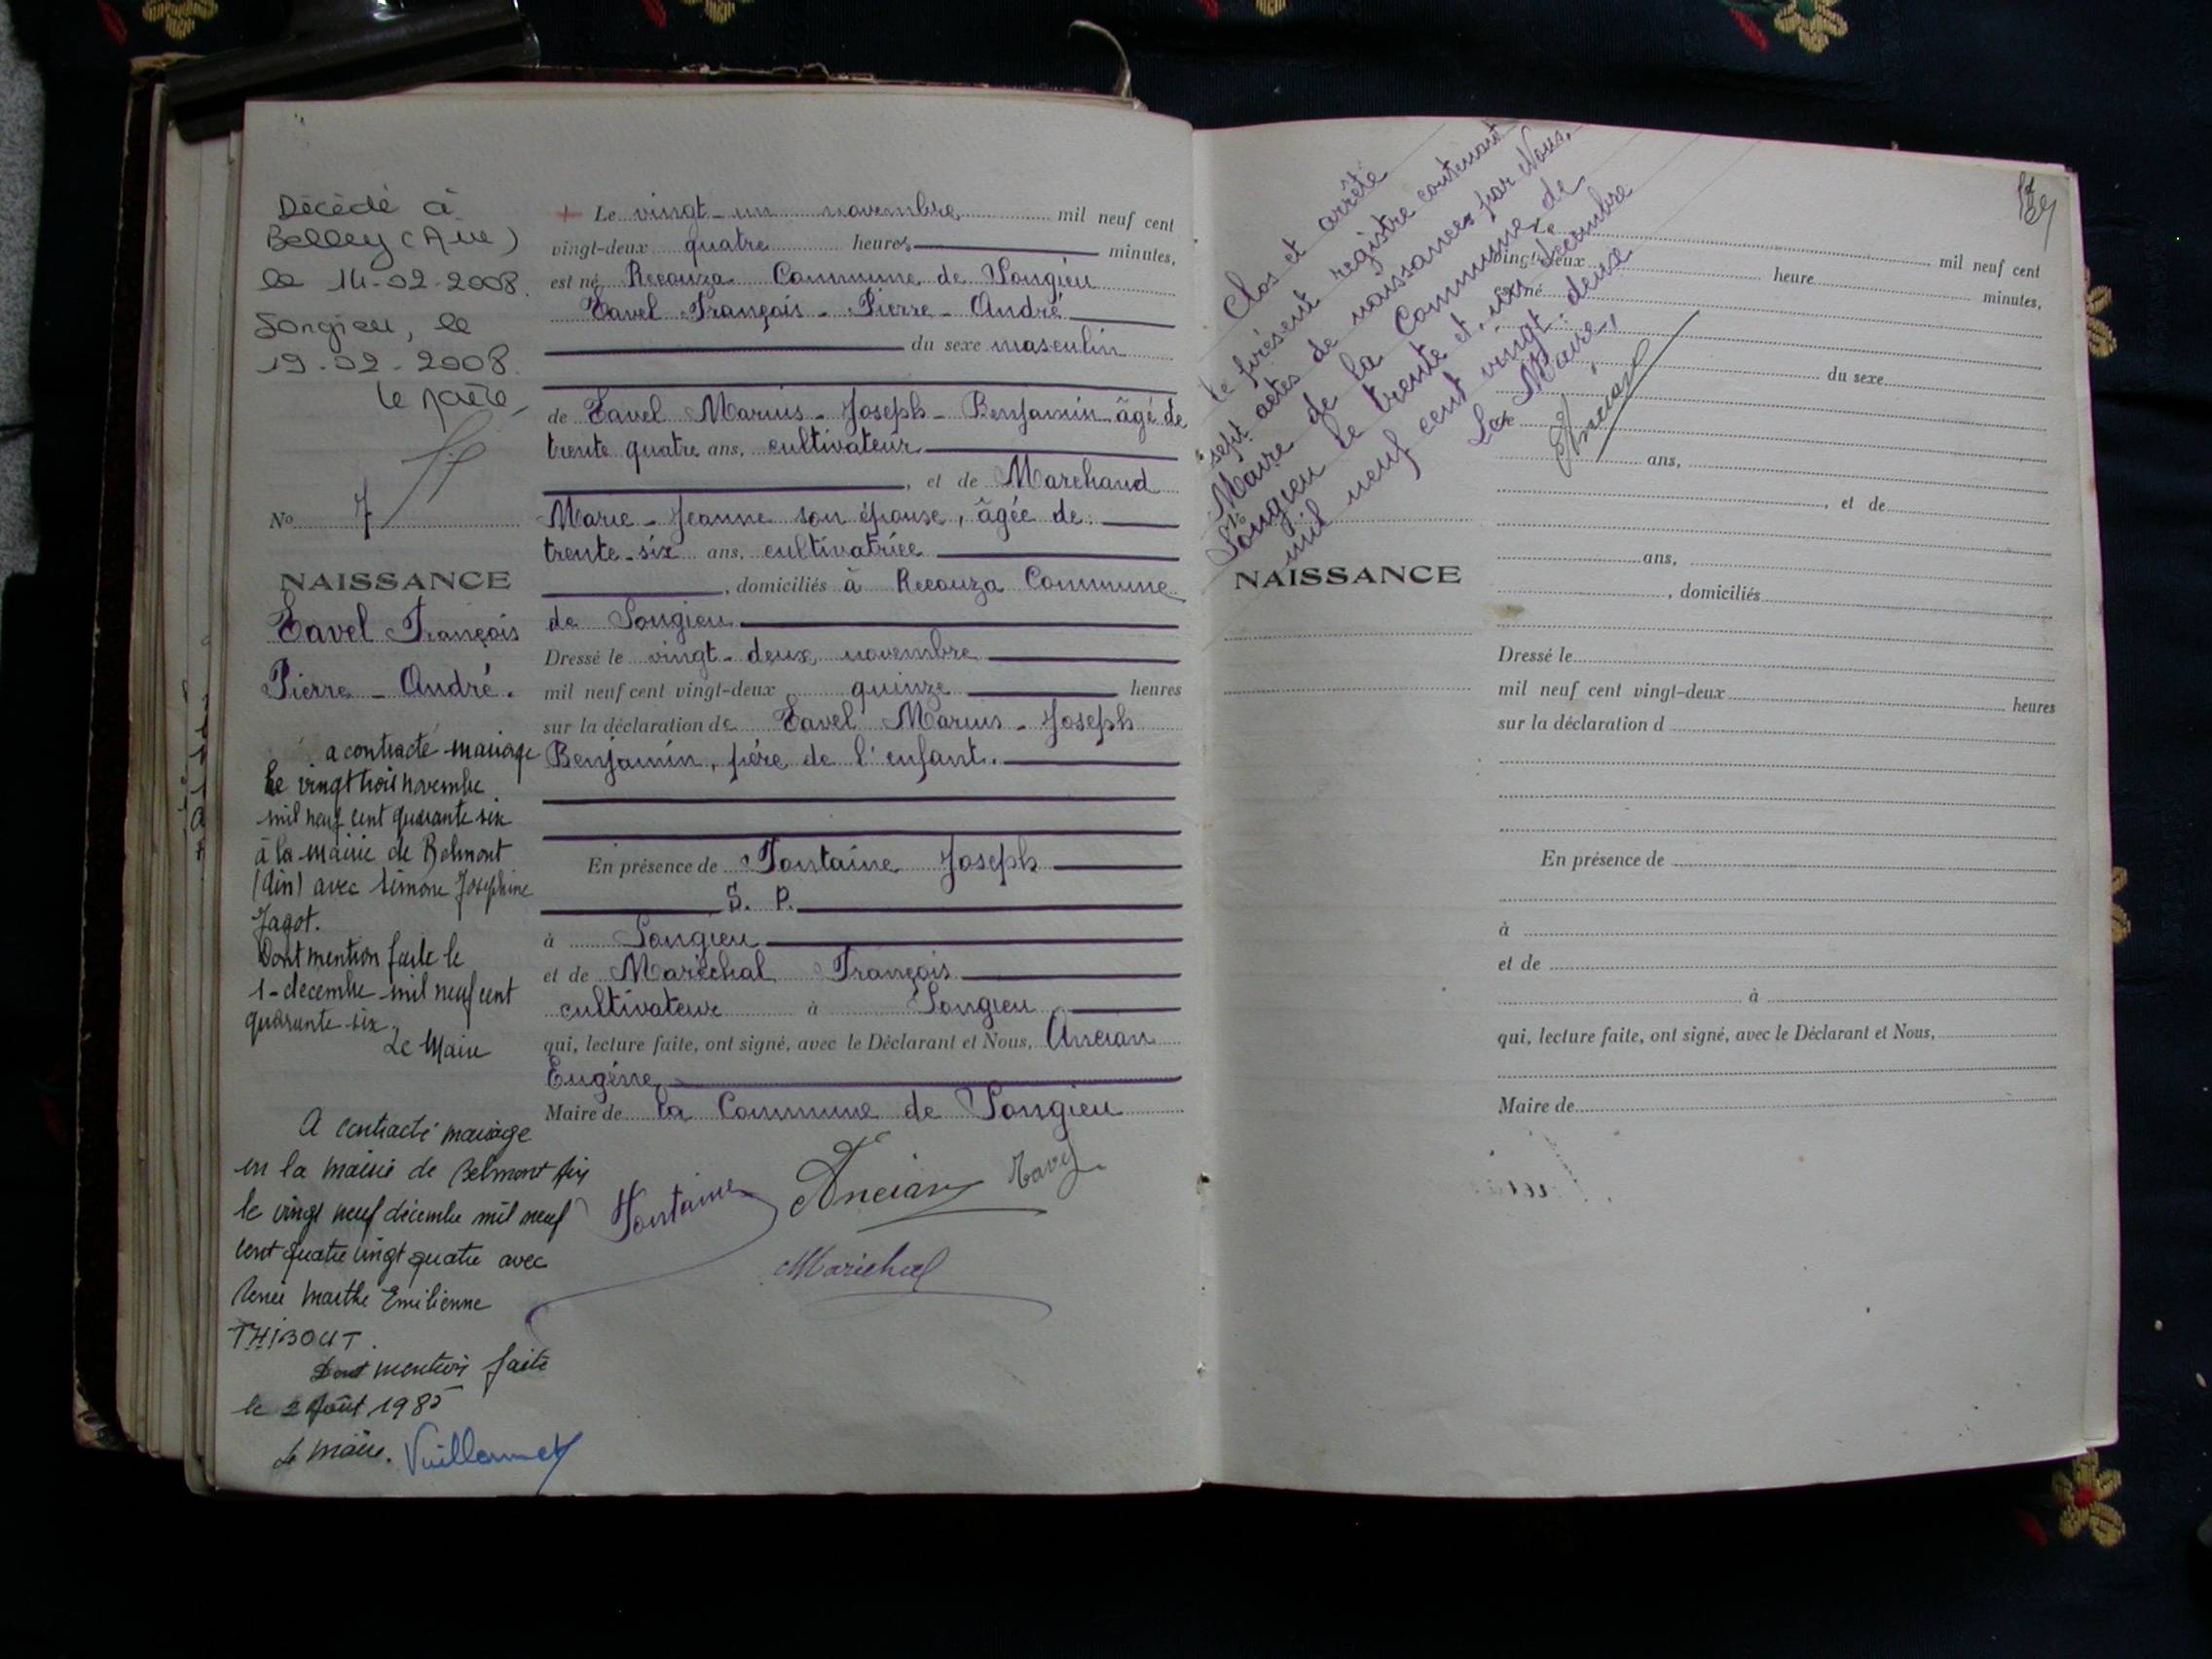 Décédé à
Belley (Ain)
le 14-02-2008.
Songieu, le
19-02-2008.
Le Maire,
No 7
NAISSANCE
Tavel François
Pierre - André.
a contracté mariage
Le vingt trois novembre
mil neuf cent quarante six
à la mairie de Belmont
(Ain) avec Simone Joséphine
Jagot.
Dont mention faite le
1- décembre mil neuf cent
quarante six.
Le Maire
A contracté mariage
en la mairie de Belmont Ain
le vingt neuf décembre mil neuf
cent quatre vingt quatre avec
Renée Marthe Emilienne
THIBOUT.
Dont mention faite
le 2 Août 1985
Le Maire. Vuillermet
Le vingt-un novembre mil neuf cent
vingt-deux quatre heures minutes,
est né Recouza Commune de Songieu
Tavel François - Pierre - André
du sexe masculin
de Tavel Marius - Joseph - Benjamin âgé de
trente quatre ans, cultivateur
, et de Marchand
Marie - Jeanne son épouse, âgée de
trente-six ans, cultivatrice
, domiciliés à Recouza Commune
de Songieu
Dressé le vingt-deux novembre
mil neuf cent vingt-deux quinze heures
sur la déclaration de Tavel Marius - Joseph
Benjamin, père de l'enfant.
En présence de Fontaine Joseph
S. P.
à Songieu
et de Maréchal François
cultivateur à Songieu
qui, lecture faite, ont signé, avec le Déclarant et Nous, Ancian
Eugène
Maire de la Commune de Songieu
Fontaine Ancian Tavel
Maréchal
Clos et arrêté
le présent registre contenant
sept actes de naissances par Nous,
Maire de la Commune de
Songieu le trente et un décembre
mil neuf cent vingt-deux
Le Maire,
EAncian
No
NAISSANCE
Le mil neuf cent
vingt-deux heure minutes,
est né
du sexe
de
ans,
, et de
ans,
, domiciliés
Dressé le
mil neuf cent vingt-deux heures
sur la déclaration d
En présence de
à
et de
à
qui, lecture faite, ont signé, avec le Déclarant et Nous,
Maire de